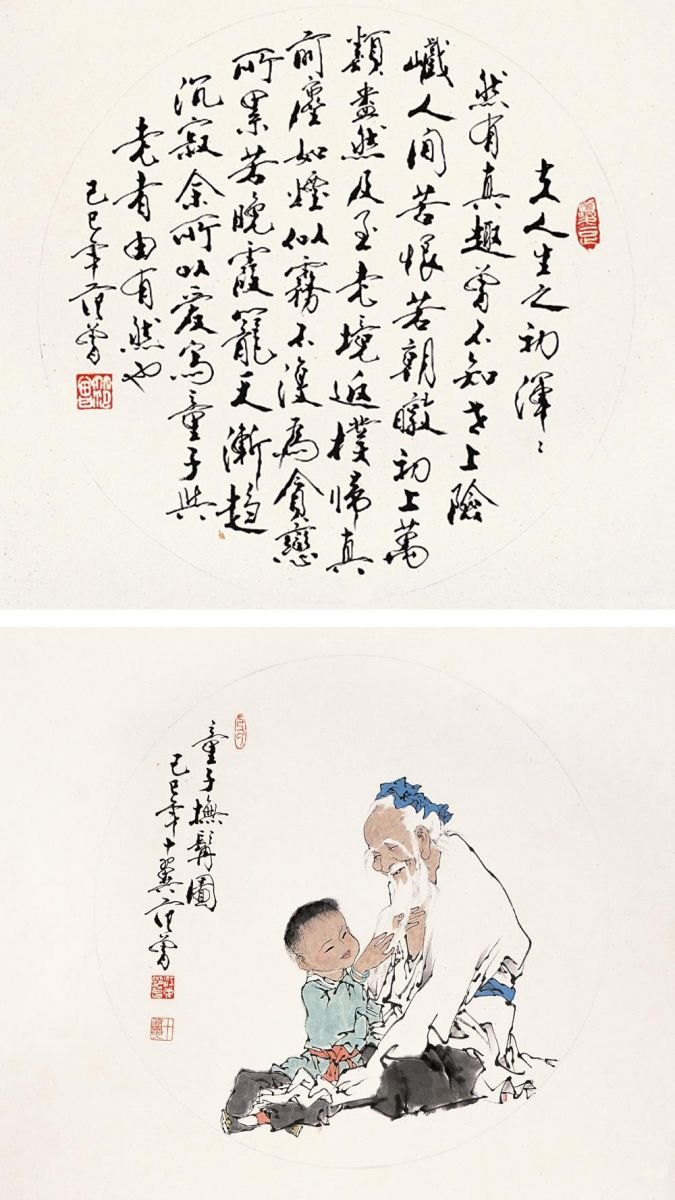 夫人生之初渾〻
然有真趣曾不知世上險
巇人间苦恨若朝暾初上萬
類盎然及至老境返樸歸真
前塵如煙似霧不復為貪戀
所累若晚霞籠天漸趨
沉寂余所以愛寫童子與
老者由有然也
己巳年范曾
童子撫髯圖
己巳年十翼范曾
十翼